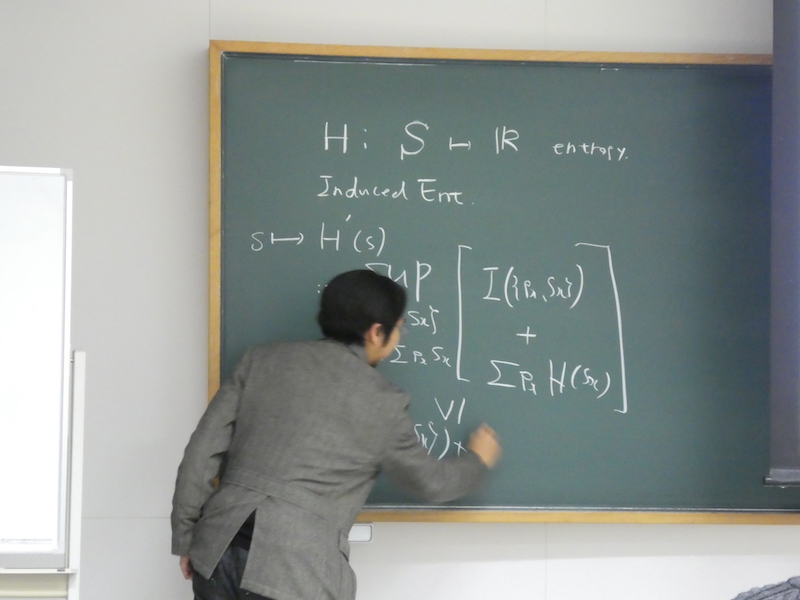 H: S ↦ ℝ entropy.
Induced Ent.
s ↦ H'(s)
sup [ I({pₓ, sₓ})
sₓ} +
Σ pₓ sₓ Σ pₓ H(sₓ) ]
∨|
sₓ}) +